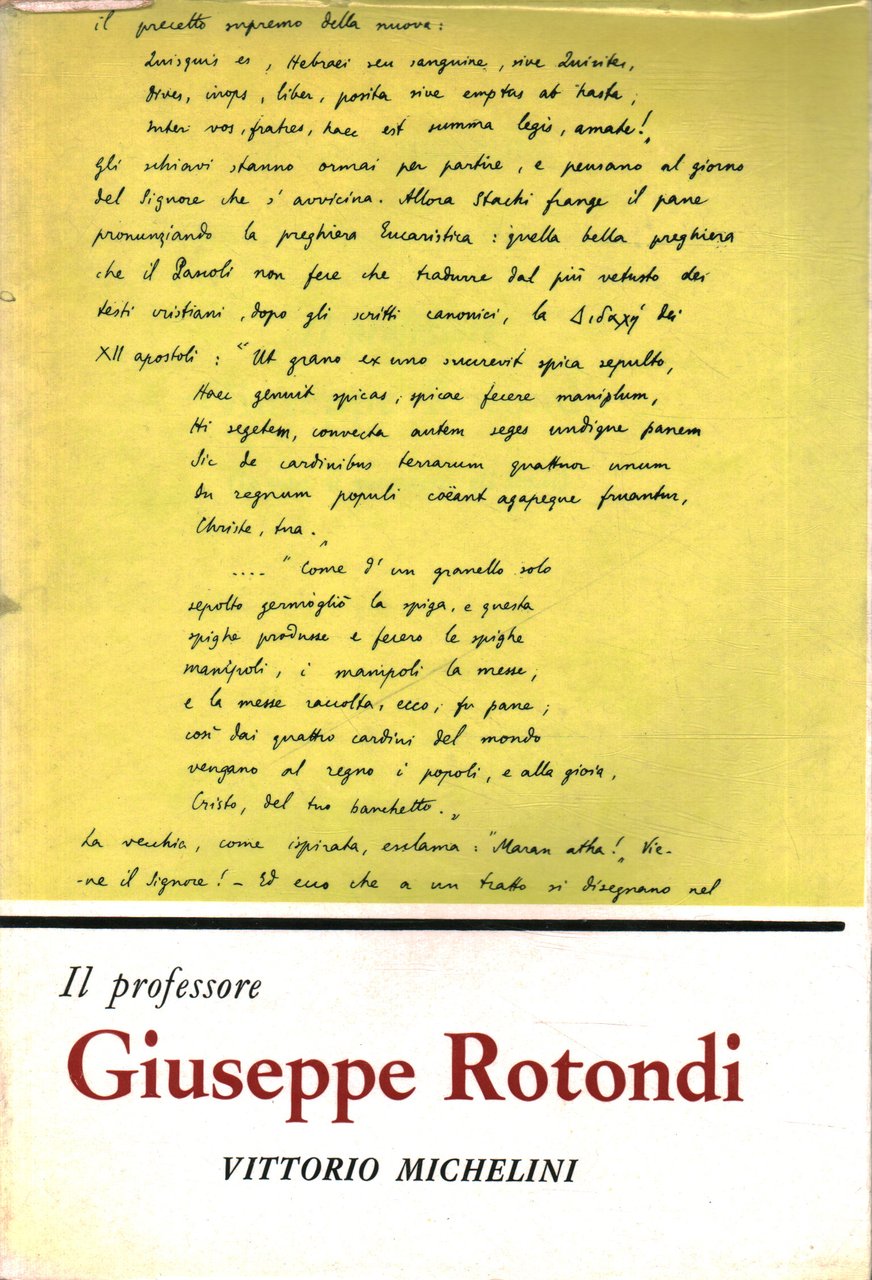 il precetto supremo della nuova:
Quisquis es, Hebraei seu sanguine, sive Quirites,
dives, inops, liber, posita sive emptus ab hasta;
inter vos, fratres, haec est summa legis, amate!„
Gli schiavi stanno ormai per partire, e pensano al giorno
del Signore che s'avvicina. Allora Stachi frange il pane
pronunziando la preghiera Eucaristica: quella bella preghiera
che il Pascoli non fece che tradurre dal più vetusto dei
testi cristiani, dopo gli scritti canonici, la Διδαχή dei
XII apostoli: "Ut grano ex uno succrevit spica sepulto,
Haec genuit spicas, spicae fecere maniplum,
Hi segetem, convecta autem seges undique panem
Sic de cardinibus terrarum quattuor unum
In regnum populi coëant agapeque fruantur,
Christe, tua.„
.... "Come d'un granello solo
sepolto germogliò la spiga, e questa
spighe produsse e fecero le spighe
manipoli, i manipoli la messe;
e la messe raccolta, ecco, fu pane;
così dai quattro cardini del mondo
vengano al regno i popoli, e alla gioia,
Cristo, del tuo banchetto.„
La vecchia, come ispirata, esclama: "Maran atha!„ Vie-
-ne il Signore! – Ed ecco che a un tratto si disegnano nel
Il professore
Giuseppe Rotondi
VITTORIO MICHELINI